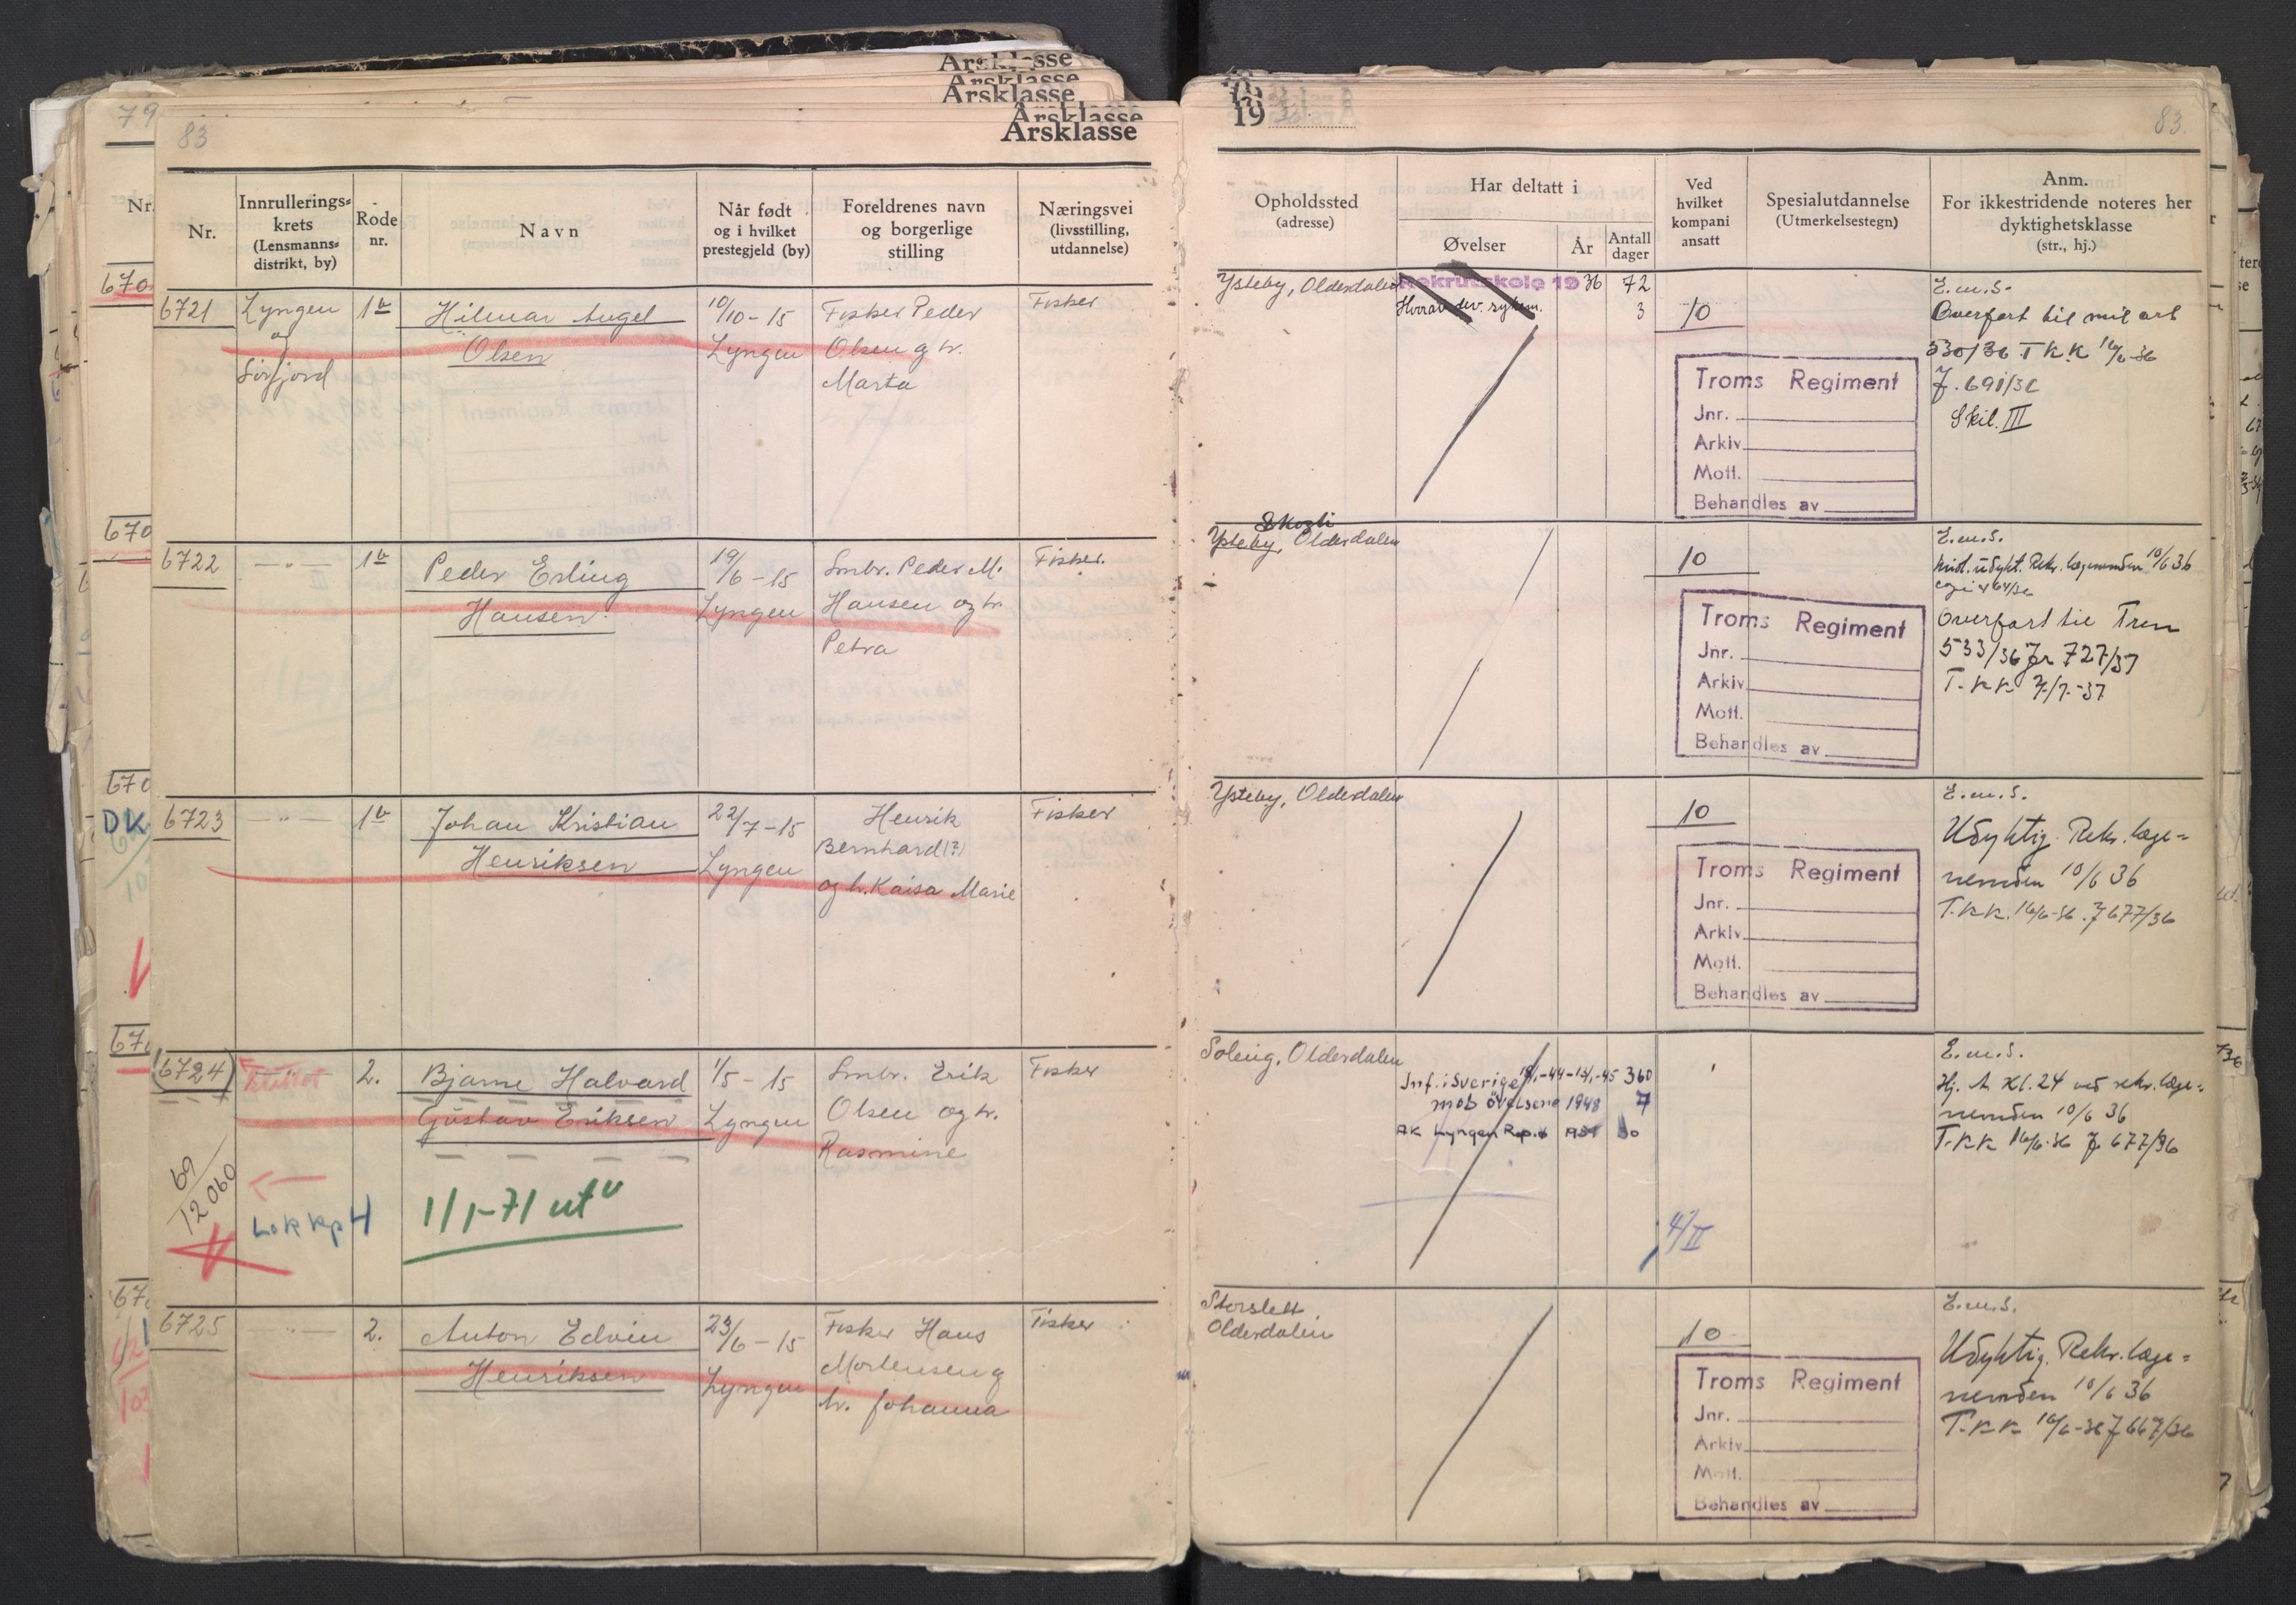 Årsklasse
Årsklasse
Årsklasse
Årsklasse
Årsklasse
79
83
Nr.
Innrullerings=
krets
(Lensmanns=
distrikt, by)
Rode
nr.
Navn
Når født
og i hvilket
prestegjeld (by)
Foreldrenes navn
og borgerlige
stilling
Næringsvei
(livsstilling,
utdannelse)
6721
Lyngen
og
Sørfjord
1b
Hilmar Angel
Olsen
10/10-15
Lyngen
Fisker Peder
Olsen og h.
Marta
Fisker
6722
—"—
1b
Peder Erling
Hansen
19/6-15
Lyngen
Smbr. Peder M.
Hansen og h.
Petra
Fisker.
6723
—"—
1b
Johan Kristian
Henriksen
22/7-15
Lyngen
Henrik
Bernhard(?)
og h. Kaisa Marie
Fisker
6724
2.
Bjarne Halvard
Gustav Eriksen
1/5-15
Lyngen
Smbr. Erik
Olsen og h.
Rasmine
Fisker
69/12060
Lok kp 4
1/1-71 ut
6725
—"—
2.
Anton Edvin
Henriksen
23/6-15
Lyngen
Fisker Hans
Mortensen og
h. Johanna
Fisker
19
83.
Opholdssted
(adresse)
Har deltatt i
Øvelser
År
Antall
dager
Ved
hvilket
kompani
ansatt
Spesialutdannelse
(Utmerkelsestegn)
Anm.
For ikkestridende noteres her
dyktighetsklasse
(str., hj.)
Ysteby, Olderdalen
Rekrutskole 1936 72
3
10
Troms Regiment
Jnr.
Arkiv
Mott.
Behandles av
E.m.s.
Overført til mil art
530/36 T.K.K. 16/6-36
J. 691/36
Skil. III
Skogli
Ysteby, Olderdalen
10
Troms Regiment
Jnr.
Arkiv
Mott.
Behandles av
E.m.s.
Midl. udykt. Rekr. lægenemden 10/6 36
Overført til Tren
533/36 Jr 727/37
T.K.K. 7/7-37
Ysteby, Olderdalen
10
Troms Regiment
Jnr.
Arkiv
Mott.
Behandles av
E.m.s.
Udyktig. Rekr. læge=
nemden 10/6 36
T.K.K. 16/6-36. J 677/36
Soleng, Olderdalen
Inf. i Sverige 360
Mob øvelsene 1948 7
AK Lyngen Rep.ø 30
4/II
E.m.s.
Hj. A Kl. 24 ved rekr. læge=
nemden 10/6 36
T.K.K 16/6-36 J 677/36
Storslett
Olderdalen
10
Troms Regiment
Jnr.
Arkiv
Mott.
Behandles av
E.m.s.
Udyktig. Rekr. læge=
nemden 10/6 36
T.K.K. 16/6-36 J 667/36